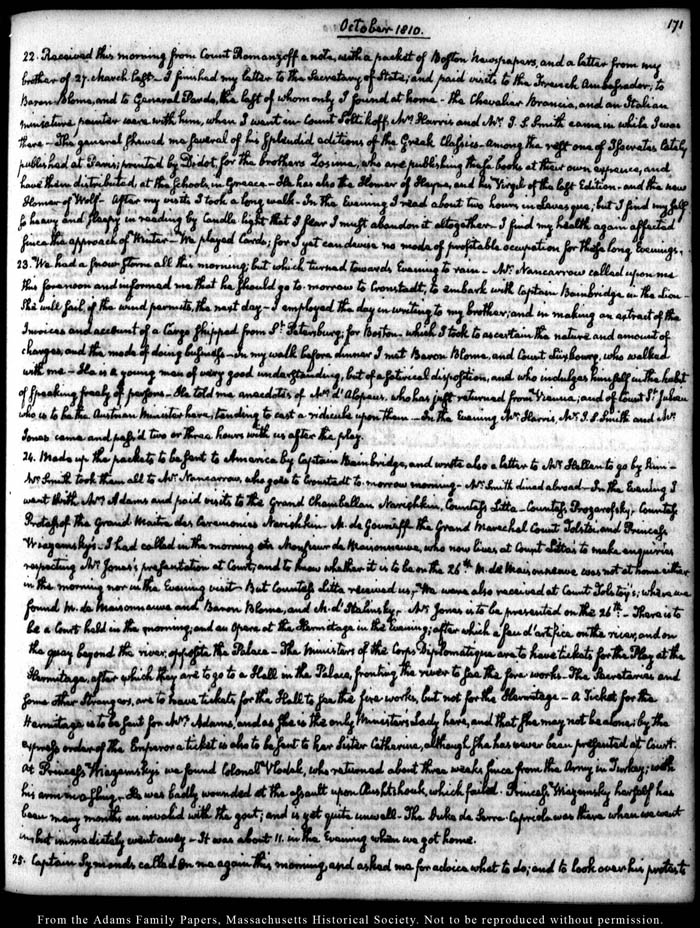 October 1810.
171
22. Received this morning from Count Romanzoff a note, with a packet of Boston Newspapers, and a letter from my
brother of 27. March last — I finished my letter to the Secretary of State; and paid visits to the French Ambassador, to
Baron Blome, and to General Pardo, the last of whom only I found at home — the Chevalier Brancia, and an Italian
miniature painter were with him, when I went in — Count Soltikoff, Mr. Harris and Mr. J. S. Smith came in while I was
there — The general shewed me several of his splendid editions of the Greek Classics — among the rest one of Isocrates lately
published at Paris; printed by Didot, for the brothers Zosima, who are publishing these books at their own expence, and
have them distributed at the Schools, in Greece — He has also the Homer of Heyne, and his Virgil of the last Edition — and the new
Homer of Wolf — After my visits I took a long walk — In the Evening I read about two hours in Levesque; but I find myself
so heavy and sleepy in reading by Candle light that I fear I must abandon it altogether — I find my health again affected
since the approach of Winter — We played Cards; for I yet can devise no mode of profitable occupation for these long Evenings.
23. We had a snow storm all this morning; but which turned towards Evening to rain — Mr. Nancarrow called upon me
this forenoon and informed me that he should go to-morrow to Cronstadt, to embark with Captain Bainbridge in the Lion —
She will sail, if the wind permits, the next day — I employed the day in writing to my brother; and in making an extract of the
Invoices and account of a Cargo shipped from St. Petersburg; for Boston — which I took to ascertain the nature and amount of
charges, and the mode of doing business — In my walk before dinner I met Baron Blome, and Count Luxbourg, who walked
with me — He is a young man of very good understanding, but of a satirical disposition, and who indulges himself in the habit
of speaking freely of persons — He told me anecdotes of Mr. d'Alopaeus, who has just returned from Vienna; and of Count St. Julien
who is to be the Austrian Minister here; tending to cast a ridicule upon them — In the Evening Mr. Harris, Mr. J. S. Smith and Mr.
Jones came and pass'd two or three hours with us after the play.
24. Made up the packets to be sent to America by Captain Bainbridge, and wrote also a letter to Mr. Hellen to go by him —
Mr. Smith took them all to Mr. Nancarrow, who goes to Cronstadt to-morrow morning — Mr. Smith dined abroad — In the Evening I
went with Mrs. Adams and paid visits to the Grand Chambellan Narishkin, Countess Litta — Countess Prozorofsky, Countess
Protassof the Grand Maitre des Ceremonies Narishkin — M. de Gourieff the Grand Marechal Count Tolstoi, and Princess
Wiazemsky's. I had called in the morning at Monsieur de Maisonneuve, who now lives, at Court Litta's to make enquiries
respecting Mr. Jones's presentation at Court; and to know whether it is to be on the 26th. M. de Maisonneuve was not at home either
in the morning nor in the Evening visit — But Countess Litta received us, — We were also received at Count Tolstoy's; where we
found M. de Maisonneuve and Baron Blome, and M. d'Italinsky — Mr. Jones is to be presented on the 26th. — There is to
be a Court held in the morning; and an Opera at the Hermitage in the Evening; after which a feu d'artifice on the river, and on
the quay beyond the river, opposite the Palace — The Ministers of the Corps Diplomatique are to have tickets for the Play at the
Hermitage, after which they are to go to a Hall in the Palace, fronting the river to see the fire works. The Secretaries and
some other Strangers, are to have tickets for the Hall to see the fire works, but not for the Hermitage — A Ticket for the
Hermitage is to be sent for Mrs. Adams, and as she is the only Ministers Lady here, and that she may not be alone; by the
express order of the Emperor a ticket is also to be sent to her Sister Catherine, although she has never been presented at Court.
At Princess Wiazemsky's we found Colonel Vlodek, who returned about three weeks since from the Army in Turkey; with
his arm in a sling. He was badly wounded at the assault upon Rushtshouk, which failed. Princess Wiazemsky herself has
been many months an invalid with the gout; and is yet quite unwell — The Duke de Serra-Capriola was there when we went
in, but immediately went away — It was about 11. in the Evening when we got home.
25. Captain Symonds called on me again this morning, and asked me for advice what to do; and to look over his protest to
From the Adams Family Papers, Massachusetts Historical Society. Not to be reproduced without permission.